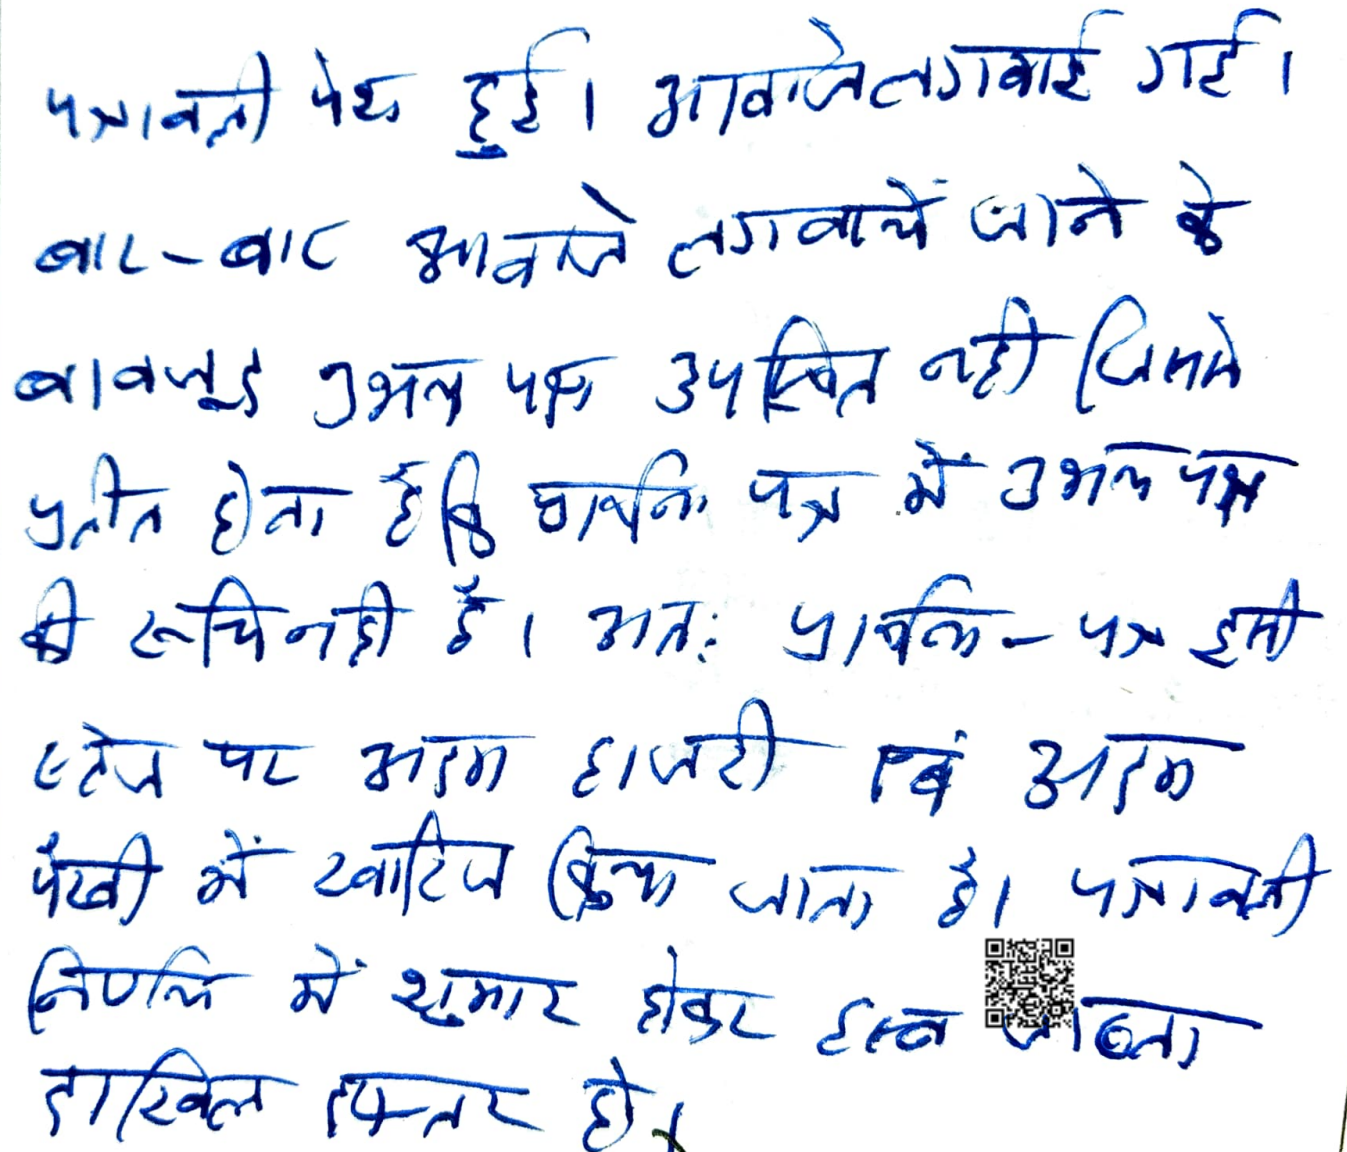 पत्रावली पेश हुई। आवाजे लगवाई गई।
बार-बार आवाजे लगवाये जाने के
बावजूद उभय पक्ष उपस्थित नही जिससे
प्रतीत होता है कि प्रार्थना पत्र में उभय पक्ष
की रूचि नही है। अतः प्रार्थना-पत्र इसी
स्टेज पर अदम हाजरी एवं अदम
पैरवी में खारिज किया जाता है। पत्रावली
निर्णय में शुमार होकर हस्ब जाब्ता
दाखिल दफ्तर हो।